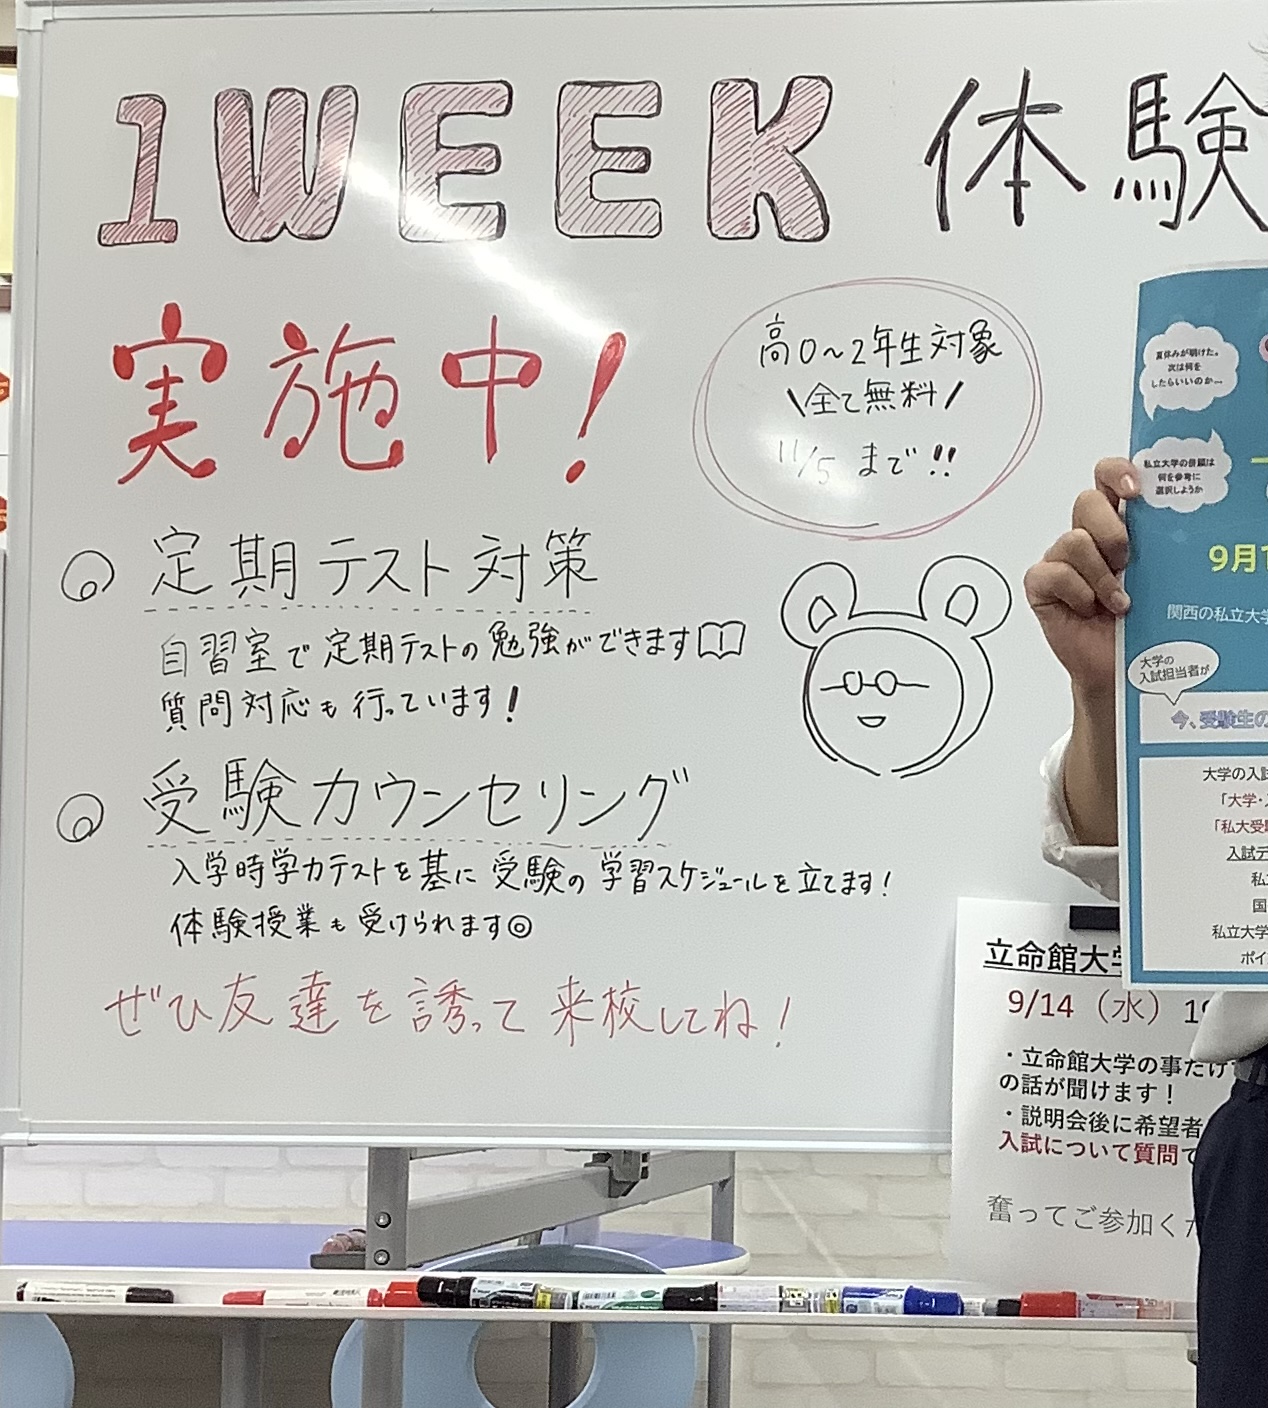 1WEEK 体験
実施中!
高0~2年生対象
\全て無料/
11/5 まで!!
定期テスト対策
自習室で定期テストの勉強ができます
質問対応も行っています!
受験カウンセリング
入学時学力テストを基に受験の学習スケジュールを立てます!
体験授業も受けられます◎
ぜひ友達を誘って来校してね!
夏休みが明けた。
次は何を
したらいいのか…
私立大学の併願は
何を参考に
選択しようか
9月1
関西の私立大学
大学の
入試担当者が
今、受験生の
大学の入試
「大学・入
「私大受験
入試デ
私立
国
私立大学
ポイ
立命館大学
9/14（水）19
・立命館大学の事だけ
の話が聞けます！
・説明会後に希望者
入試について質問で
奮ってご参加くだ